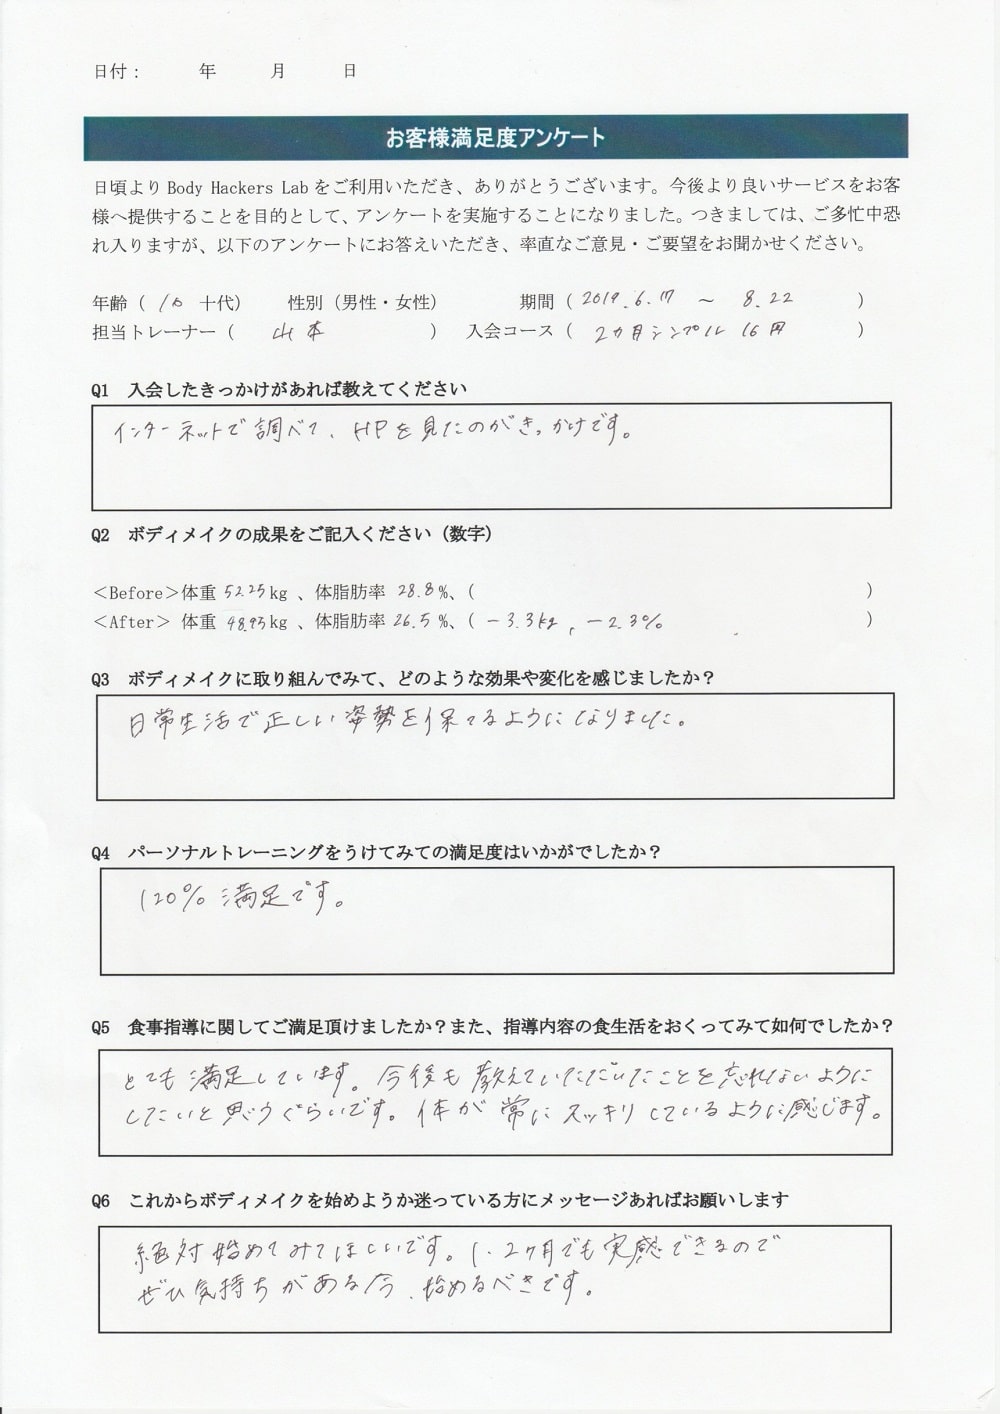 日付： 年 月 日
お客様満足度アンケート
日頃より Body Hackers Lab をご利用いただき、ありがとうございます。今後より良いサービスをお客
様へ提供することを目的として、アンケートを実施することになりました。つきましては、ご多忙中恐
れ入りますが、以下のアンケートにお答えいただき、率直なご意見・ご要望をお聞かせください。
年齢（ 10 十代） 性別（男性・女性） 期間（ 2019.6.17 ～ 8.22 ）
担当トレーナー（ 山本 ） 入会コース（ 2カ月シンプル 16回 ）
Q1 入会したきっかけがあれば教えてください
インターネットで調べて、HPを見たのがきっかけです。
Q2 ボディメイクの成果をご記入ください（数字）
＜Before＞体重 52.25kg 、体脂肪率 28.8%、（ ）
＜After＞ 体重 48.95kg 、体脂肪率 26.5%、（ －3.3kg, －2.3% ）
Q3 ボディメイクに取り組んでみて、どのような効果や変化を感じましたか？
日常生活で正しい姿勢を保てるようになりました。
Q4 パーソナルトレーニングをうけてみての満足度はいかがでしたか？
120% 満足です。
Q5 食事指導に関してご満足頂けましたか？また、指導内容の食生活をおくってみて如何でしたか？
とても満足しています。今後も教えていただいたことを忘れないように
したいと思うぐらいです。体が常にスッキリしているように感じます。
Q6 これからボディメイクを始めようか迷っている方にメッセージあればお願いします
絶対始めてみてほしいです。1、2ヶ月でも実感できるので
ぜひ気持ちがある今、始めるべきです。